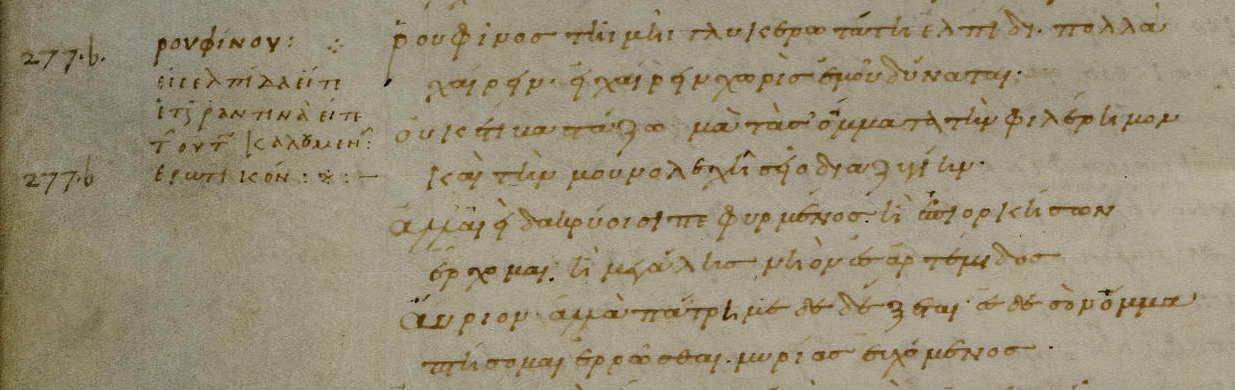 277.b.
ρουφίνου:
εἰς ἐλπίδα εἴτε
τινὰ εἴτε
277.b
ἐρωτικόν:
ῥουφίνος τῆι μῆι γλυκερωτάτηι ἐλπίδι. πολλὰ
χαίρειν· εἰ χαίρειν χωρὶς ἐμοῦ δύναται·
οὐκέτι βαστάζω μὰ τὰ σ' ὄμματα τὴν φιλέρημον
καὶ τὴν μουνολεχῆ σεῖο διαζυγίην·
ἀλλ' αἰεὶ δακρύοισι πεφυρμένος. ἢ ἐπιορκήσων
ἔρχομαι. ἢ μεγάλης νηὸν ἐς ἀρτέμιδος
αὔριον ἀλλὰ πάτρη με δεδέξεται· ἐς δὲ σὸν ὄμμα
πτήσομαι ἐρρῶσθαι. μυρία σ' εὐχόμενος.